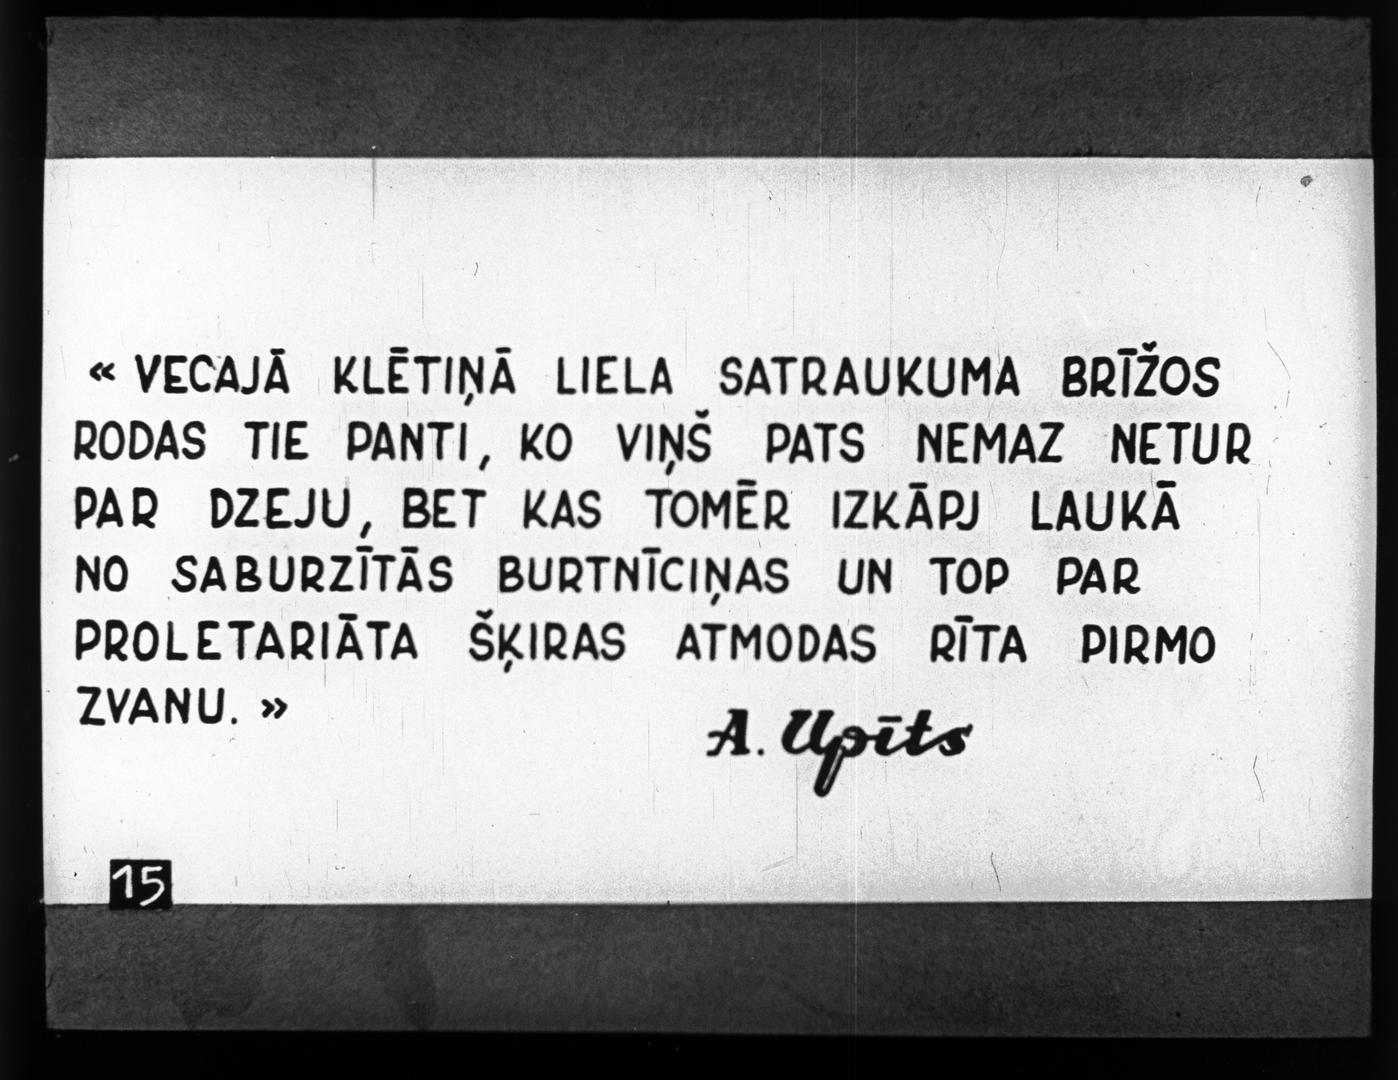 « VECAJĀ KLĒTIŅĀ LIELA SATRAUKUMA BRĪŽOS
RODAS TIE PANTI, KO VIŅŠ PATS NEMAZ NETUR
PAR DZEJU, BET KAS TOMĒR IZKĀPJ LAUKĀ
NO SABURZĪTĀS BURTNĪCIŅAS UN TOP PAR
PROLETARIĀTA ŠĶIRAS ATMODAS RĪTA PIRMO
ZVANU. »
A. Upīts
15